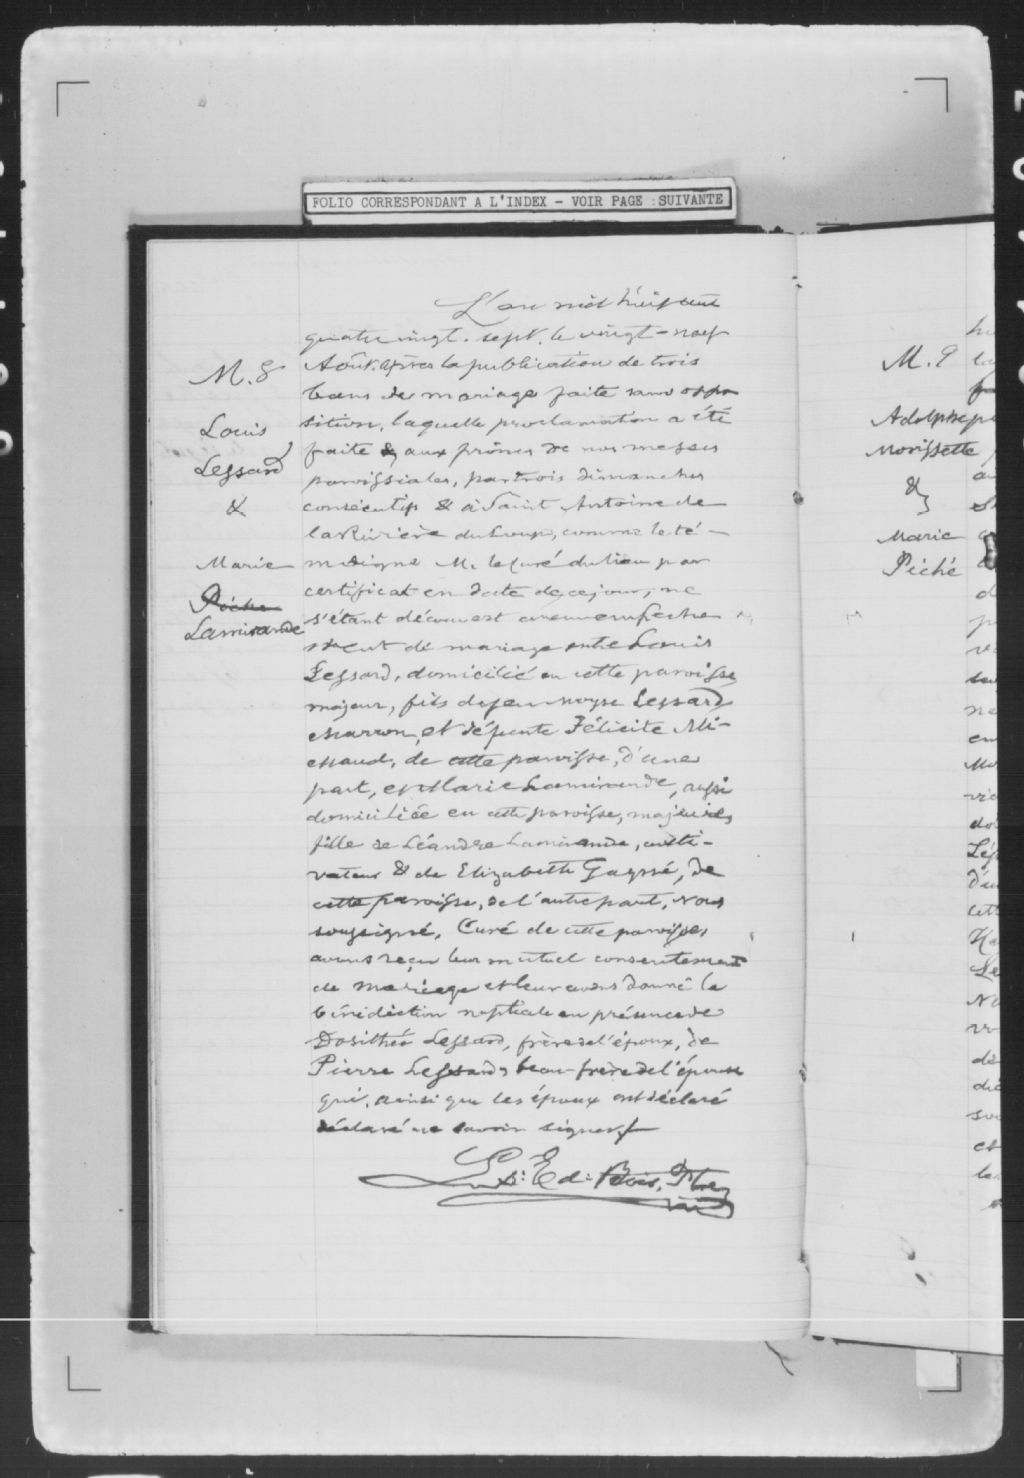 FOLIO CORRESPONDANT A L'INDEX - VOIR PAGE SUIVANTE
L'an mil huit cent
quatre vingt-sept, le vingt-neuf
Août, après la publication de trois
bans de mariage faite sans oppo
sition, laquelle proclamation a été
faite & aux prônes de nos messes
paroissiales, par trois dimanches
consécutifs & à Saint Antoine de
la Rivière du Loup, comme le té-
moigne M. le Curé du lieu par
certificat en date de ce jour, ne
s'étant découvert aucun empêche
ment de mariage entre Louis
Lessard, domicilié en cette paroisse
majeur, fils de feu Moyse Lessard
et défunte Félicité Mi-
chaud, de cette paroisse, d'une
part, et Marie Lamirande, aussi
domiciliée en cette paroisse, majeure,
fille de Léandre Lamirande, culti-
vateur & de Elizabeth Gaussé, de
cette paroisse, de l'autre part, Nous
soussigné, Curé de cette paroisse,
avons reçu leur mutuel consentement
de mariage et leur avons donné la
bénédiction nuptiale en présence de
Dosithée Lessard, frère de l'époux, de
Pierre Lessard, beau-frère de l'épouse
qui, ainsi que les époux ont déclaré
déclaré ne savoir signer
Ls: Ed: Bois, Ptre
M. 8
Louis
Lessard
&
Marie
Lamirande
M. 9
Adolphe
Morissette
&
Marie
Piché